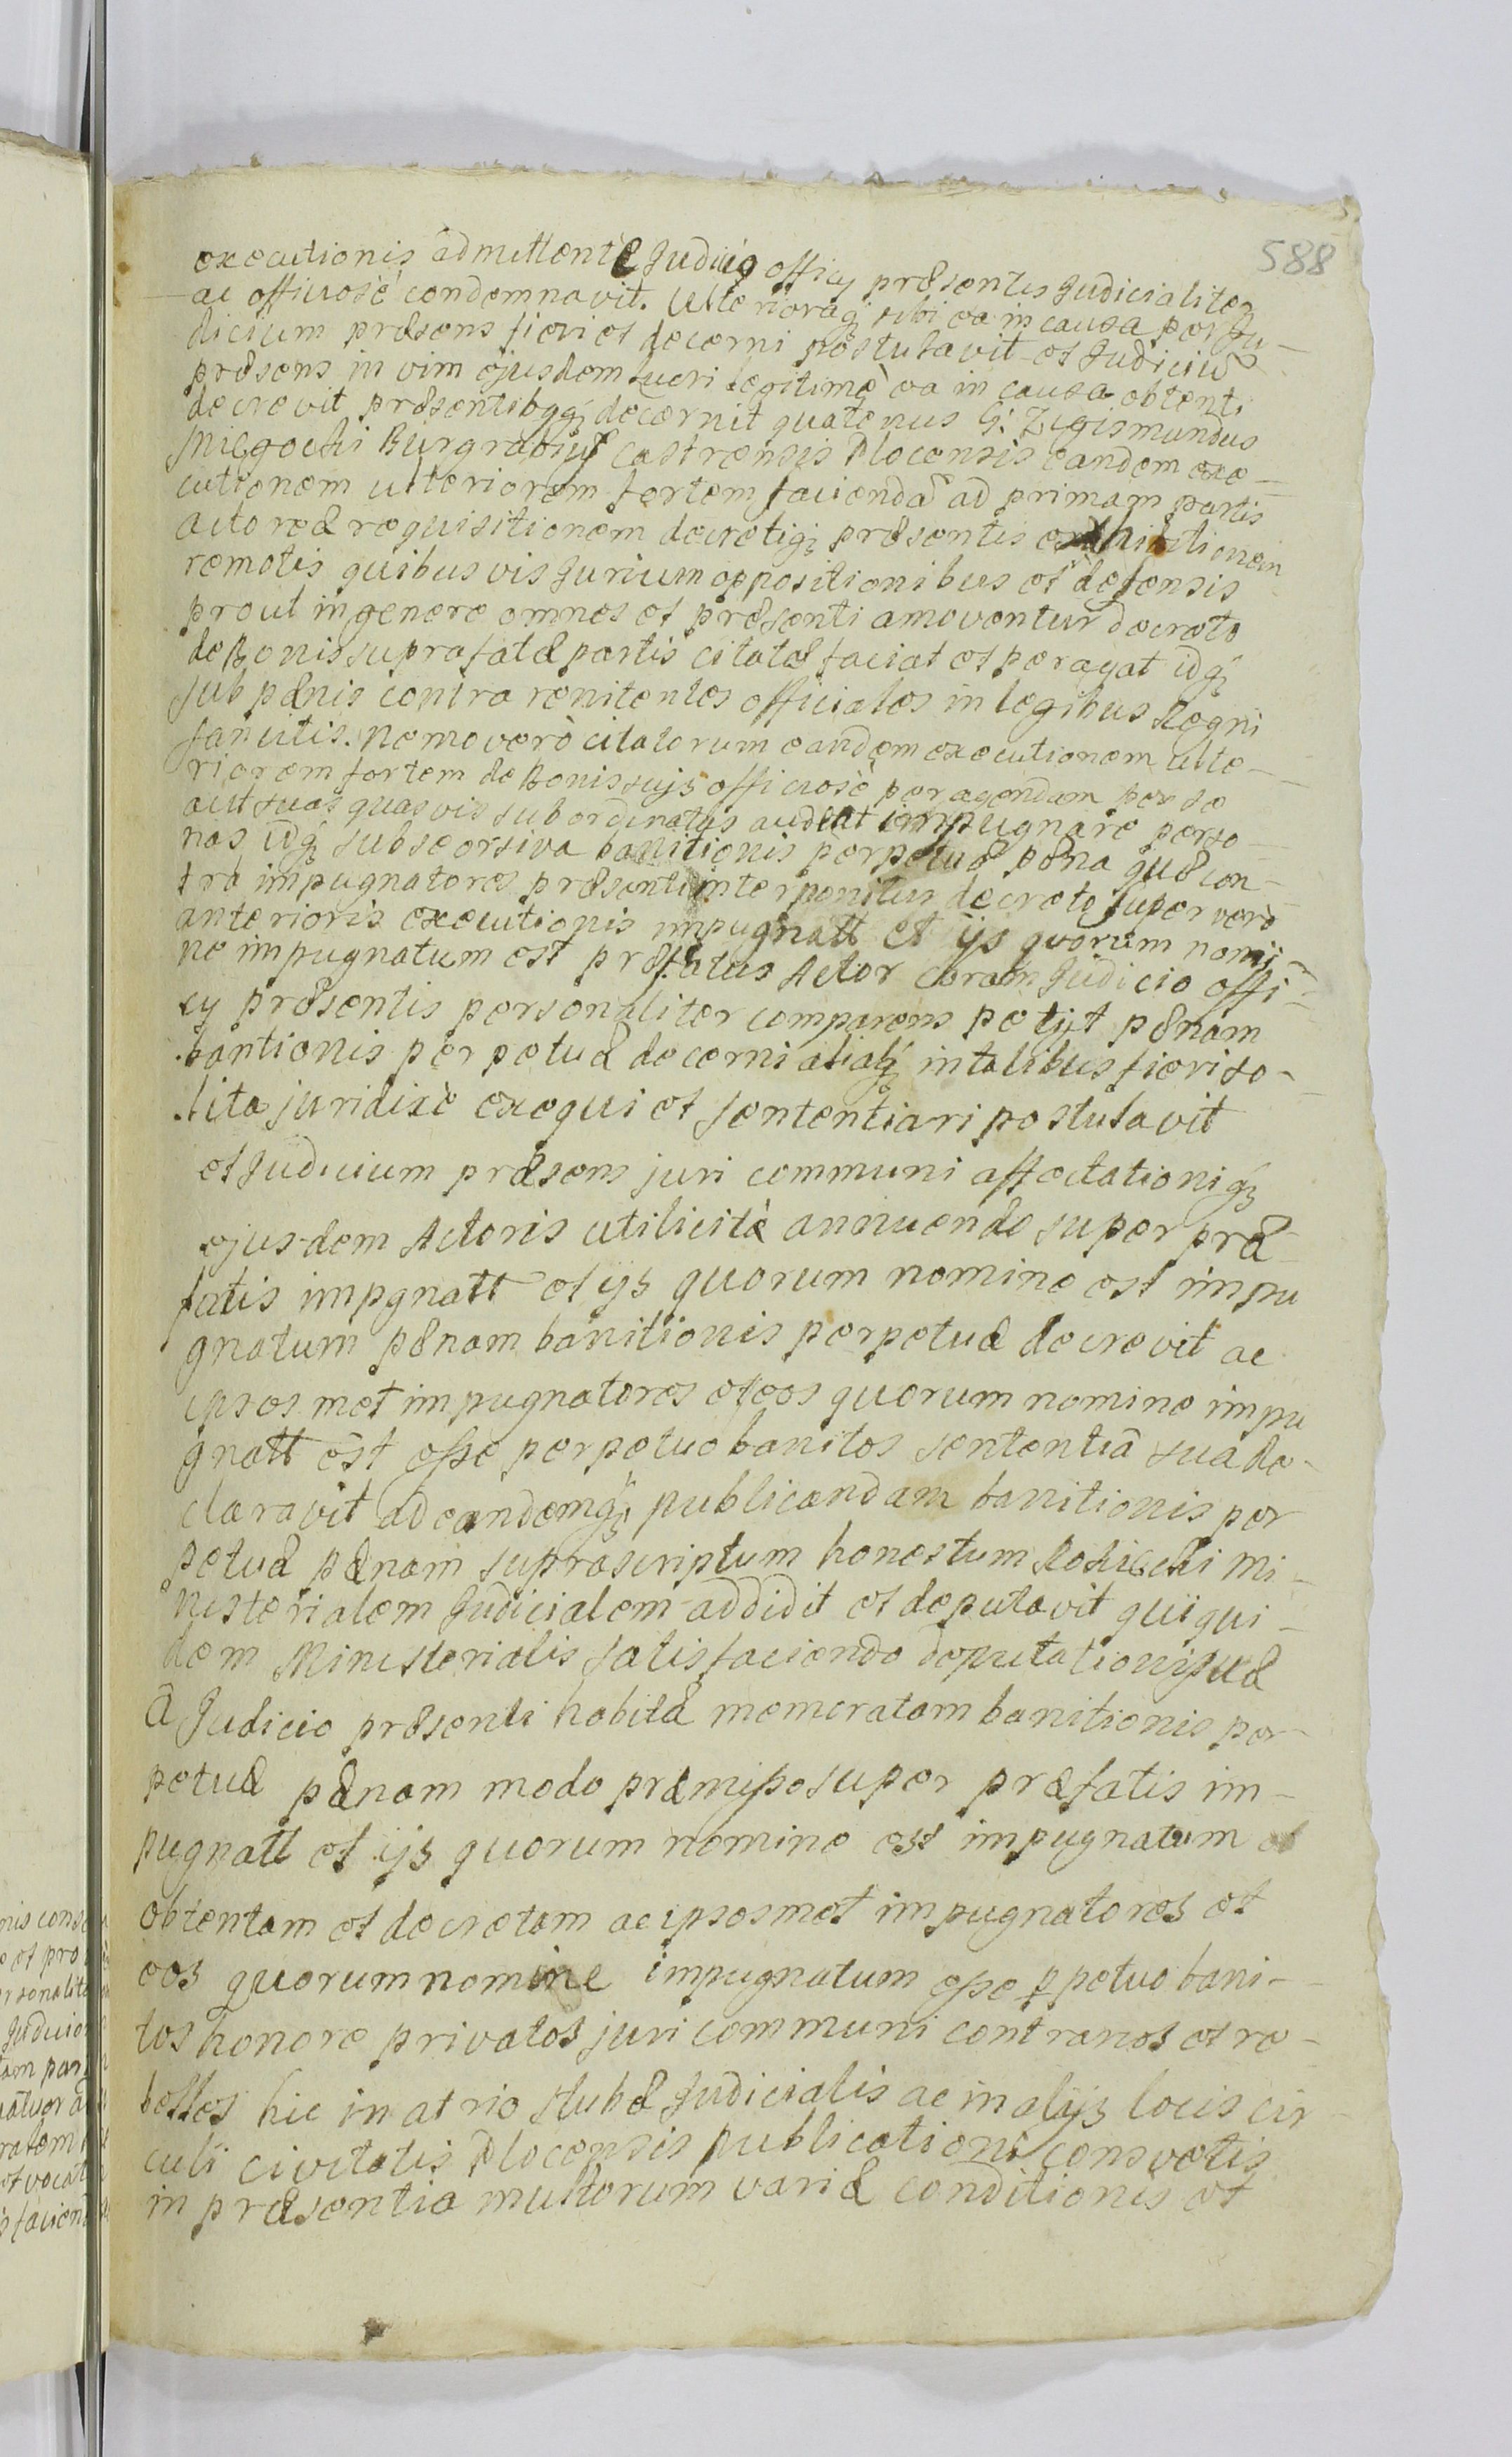 588
executionis admittente Judicio officij præsentis Judicialiter
ac officiosè condemnavit. Ulterioraq; sibi ea in causa per Ju-
dicium præsens fieri et decerni postulavit et Judiciũ
præsens in vim ejusdem lucri legitimè ea in causa obtenti
decrevit præsentibqq; decernit quatenus G: Zigismundus
Miegocki Burgrabius castrensis Plocensis eandem exe-
cutionem ulteriorem fortem faciendã ad primam partis
actoreæ requisitionem decretiq; præsentis exhibitionem
remotis quibusvis Jurium oppositionibus et defensis
prout in genere omnes et præsenti amoventur decreto
de Bonis suprafatæ partis citatæ faciat et peragat idq;
sub pænis contra renitentes officiales in legibus Regni
sancitis. Nemo verò citatorum eandem executionem ulte-
riorem fortem de Bonis suis officiosè peragendam per se
aut suas quasvis subordinatas audeat impugnare perso-
nas idq; sub seorsiva banitionis perpetuæ pæna quæ con-
tra impugnatores præsenti interponitur decreto super verò
anterioris executionis impugnatt et ijs quorum nomi-
ne impugnatum est præfatus Actor coram Judicio offi-
cij præsentis personaliter comparens petijt pænam
banitionis perpetuæ decerni aliaq; in talibus fieri so-
lita juridicè exequi et sententiari postulavit
et Judicium præsens juri communi affectationiq;
ejusdem Actoris utilicitè annuendo super præ
fatis impgnatt et ijs quorum nomine est impu
gnatum pænam banitionis perpetuæ decrevit ac
ipsos met impugnatores et eos quorum nomine impu
gnatt est esse perpetuo banitos sententiâ suâ de-
claravit ad eandemq; publicandam banitionis per
petuæ pænam suprascriptum honestum Kosicki Mi-
nisterialem Judicialem addidit et deputavit qui qui-
dem Ministerialis satisfaciendo deputationi suæ
â Judicio præsenti habitæ memoratam banitionis per-
petuæ pænam modo præmisso super præfatis im-
pugnatt et ijs quorum nomine est impugnatum
obtentam et decretam ac ipsosmet impugnatores et
eos quorum nomine impugnatum esse ꝑpetuo bani-
tos honore privatos juri communi contrarios et re-
belles hic in atrio stubæ Judicialis ac in alijs locis cir
culi civitatis Plocensis publicationi consvetis
in præsentia multorum variæ conditionis et